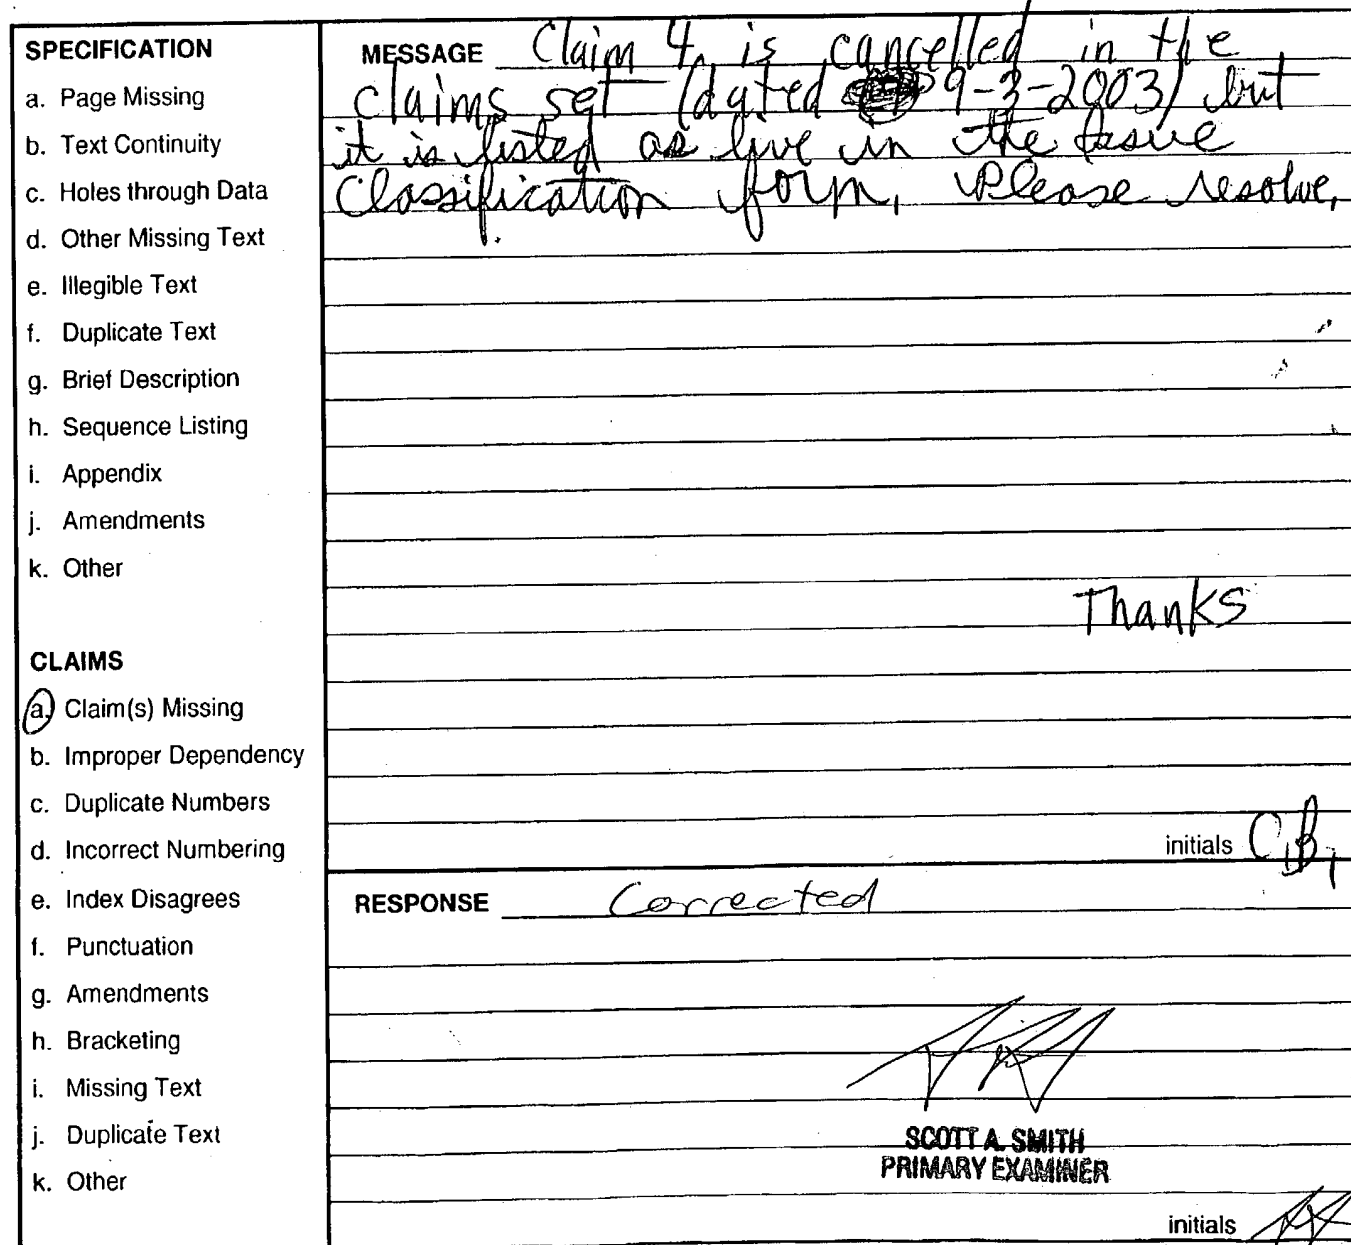 SPECIFICATION
a. Page Missing
b. Text Continuity
c. Holes through Data
d. Other Missing Text
e. Illegible Text
f. Duplicate Text
g. Brief Description
h. Sequence Listing
i. Appendix
j. Amendments
k. Other
CLAIMS
a. Claim(s) Missing
b. Improper Dependency
c. Duplicate Numbers
d. Incorrect Numbering
e. Index Disagrees
f. Punctuation
g. Amendments
h. Bracketing
i. Missing Text
j. Duplicate Text
k. Other
MESSAGE Claim 4 is cancelled in the
claims set (dated 9-3-2003) but
it is listed as live in the Issue
Classification form. Please resolve.
Thanks
initials C.B.
RESPONSE Corrected
SCOTT A. SMITH
PRIMARY EXAMINER
initials